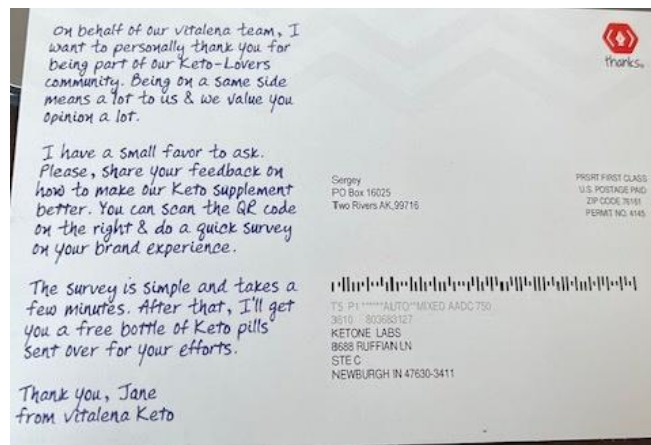 On behalf of our vitalena team, I
want to personally thank you for
being part of our Keto-Lovers
community. Being on a same side
means a lot to us & we value you
opinion a lot.
I have a small favor to ask.
Please, share your feedback on
how to make our Keto supplement
better. You can scan the QR code
on the right & do a quick survey
on your brand experience.
The survey is simple and takes a
few minutes. After that, I'll get
you a free bottle of Keto pills
sent over for your efforts.
Thank you, Jane
from vitalena Keto
thanks.
Sergey
PO Box 16025
Two Rivers AK,99716
PRSRT FIRST CLASS
U.S. POSTAGE PAID
ZIP CODE 76161
PERMIT NO. 4145
T5 P1 ******AUTO**MIXED AADC 750
3810 803683127
KETONE LABS
8688 RUFFIAN LN
STE C
NEWBURGH IN 47630-3411